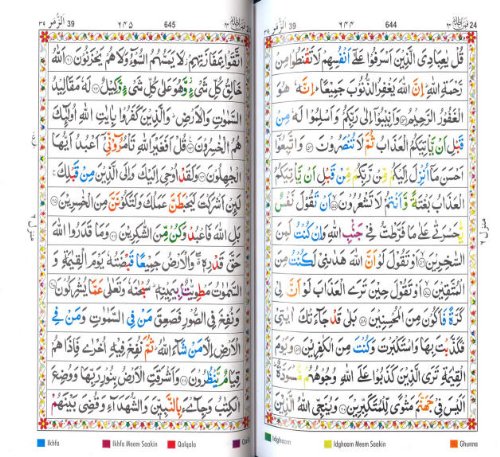 24 644 ٦٤٤ الزُّمَر 39
قُلْ يٰعِبَادِيَ الَّذِيْنَ اَسْرَفُوْا عَلٰٓى اَنْفُسِهِمْ لَا تَقْنَطُوْا مِنْ
رَّحْمَةِ اللّٰهِ ؕ اِنَّ اللّٰهَ يَغْفِرُ الذُّنُوْبَ جَمِيْعًا ؕ اِنَّهٗ هُوَ
الْغَفُوْرُ الرَّحِيْمُ وَاَنِيْبُوْٓا اِلٰى رَبِّكُمْ وَاَسْلِمُوْا لَهٗ مِنْ
قَبْلِ اَنْ يَّاْتِيَكُمُ الْعَذَابُ ثُمَّ لَا تُنْصَرُوْنَ وَاتَّبِعُوْٓا
اَحْسَنَ مَآ اُنْزِلَ اِلَيْكُمْ مِّنْ رَّبِّكُمْ مِّنْ قَبْلِ اَنْ يَّاْتِيَكُمُ
الْعَذَابُ بَغْتَةً وَّاَنْتُمْ لَا تَشْعُرُوْنَ اَنْ تَقُوْلَ نَفْسٌ
يّٰحَسْرَتٰى عَلٰى مَا فَرَّطْتُّ فِيْ جَنْۢبِ اللّٰهِ وَاِنْ كُنْتُ لَمِنَ
السّٰخِرِيْنَ اَوْ تَقُوْلَ لَوْ اَنَّ اللّٰهَ هَدٰىنِيْ لَكُنْتُ مِنَ
الْمُتَّقِيْنَ اَوْ تَقُوْلَ حِيْنَ تَرَى الْعَذَابَ لَوْ اَنَّ لِيْ
كَرَّةً فَاَكُوْنَ مِنَ الْمُحْسِنِيْنَ بَلٰى قَدْ جَآءَتْكَ اٰيٰتِيْ
فَكَذَّبْتَ بِهَا وَاسْتَكْبَرْتَ وَكُنْتَ مِنَ الْكٰفِرِيْنَ وَيَوْمَ
الْقِيٰمَةِ تَرَى الَّذِيْنَ كَذَبُوْا عَلَى اللّٰهِ وُجُوْهُهُمْ مُّسْوَدَّةٌ
اَلَيْسَ فِيْ جَهَنَّمَ مَثْوًى لِّلْمُتَكَبِّرِيْنَ وَيُنَجِّي اللّٰهُ
Idghaam Idghaam Meem Saakin Ghunna
39 645 ٦٤٥ الزُّمَر
اتَّقَوْا بِمَفَازَتِهِمْ لَا يَمَسُّهُمُ السُّوْٓءُ وَلَا هُمْ يَحْزَنُوْنَ اَللّٰهُ
خَالِقُ كُلِّ شَيْءٍ وَّهُوَ عَلٰى كُلِّ شَيْءٍ وَّكِيْلٌ لَهٗ مَقَالِيْدُ
السَّمٰوٰتِ وَالْاَرْضِ وَالَّذِيْنَ كَفَرُوْا بِاٰيٰتِ اللّٰهِ اُولٰٓئِكَ
هُمُ الْخٰسِرُوْنَ قُلْ اَفَغَيْرَ اللّٰهِ تَاْمُرُوْٓنِّيْٓ اَعْبُدُ اَيُّهَا
الْجٰهِلُوْنَ وَلَقَدْ اُوْحِيَ اِلَيْكَ وَاِلَى الَّذِيْنَ مِنْ قَبْلِكَ
لَئِنْ اَشْرَكْتَ لَيَحْبَطَنَّ عَمَلُكَ وَلَتَكُوْنَنَّ مِنَ الْخٰسِرِيْنَ
بَلِ اللّٰهَ فَاعْبُدْ وَكُنْ مِّنَ الشّٰكِرِيْنَ وَمَا قَدَرُوا اللّٰهَ
حَقَّ قَدْرِهٖ وَالْاَرْضُ جَمِيْعًا قَبْضَتُهٗ يَوْمَ الْقِيٰمَةِ وَ
السَّمٰوٰتُ مَطْوِيّٰتٌۢ بِيَمِيْنِهٖ سُبْحٰنَهٗ وَتَعٰلٰى عَمَّا يُشْرِكُوْنَ
وَنُفِخَ فِي الصُّوْرِ فَصَعِقَ مَنْ فِي السَّمٰوٰتِ وَمَنْ فِي
الْاَرْضِ اِلَّا مَنْ شَآءَ اللّٰهُ ثُمَّ نُفِخَ فِيْهِ اُخْرٰى فَاِذَا هُمْ
قِيَامٌ يَّنْظُرُوْنَ وَاَشْرَقَتِ الْاَرْضُ بِنُوْرِ رَبِّهَا وَوُضِعَ
الْكِتٰبُ وَجِايْٓءَ بِالنَّبِيّٖنَ وَالشُّهَدَآءِ وَقُضِيَ بَيْنَهُمْ
Ikhfa Ikhfa Meem Saakin Qalqala